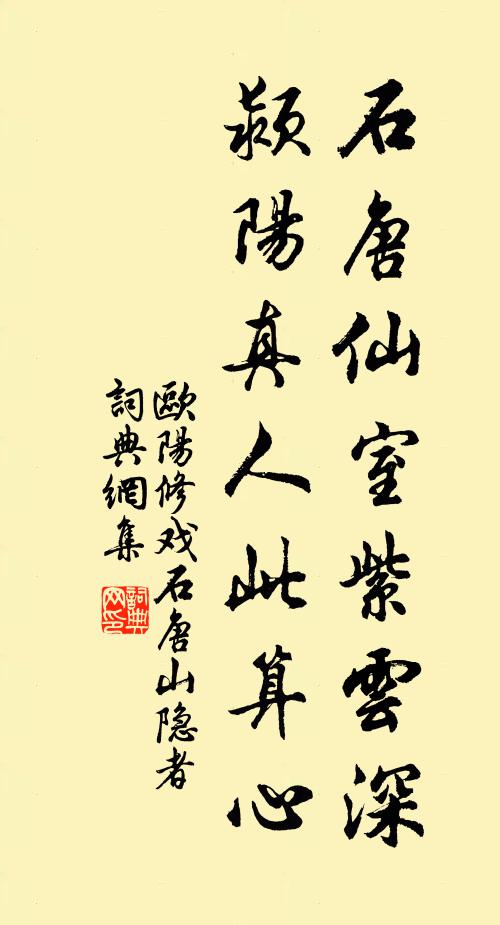 石唐仙室紫雲深
潁陽真人此算心
歐陽修戏石唐山隐者
詞典網集
詞典
网印